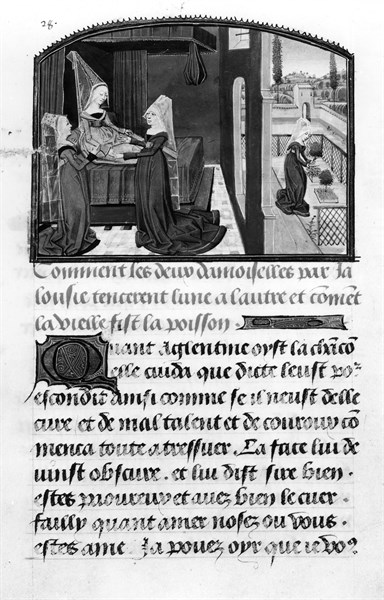 28.
Comment les deux damoiselles par Ja
lousie tencerent lune a lautre et comēt
la vielle fist la poisson
Quant aglentine oyst la chancō
elle cuida que dicte leust po²
escondit ainsi comme se il neust delle
cure et de mal talent et de courroux com
menca toute a tressuer. La face lui de
uinst obscure. et lui dist sire bien
estes paoureux et auez bien le cuer
failly quant amer nosez ou vous
estes ame Ja pouez oyr que ie vo²